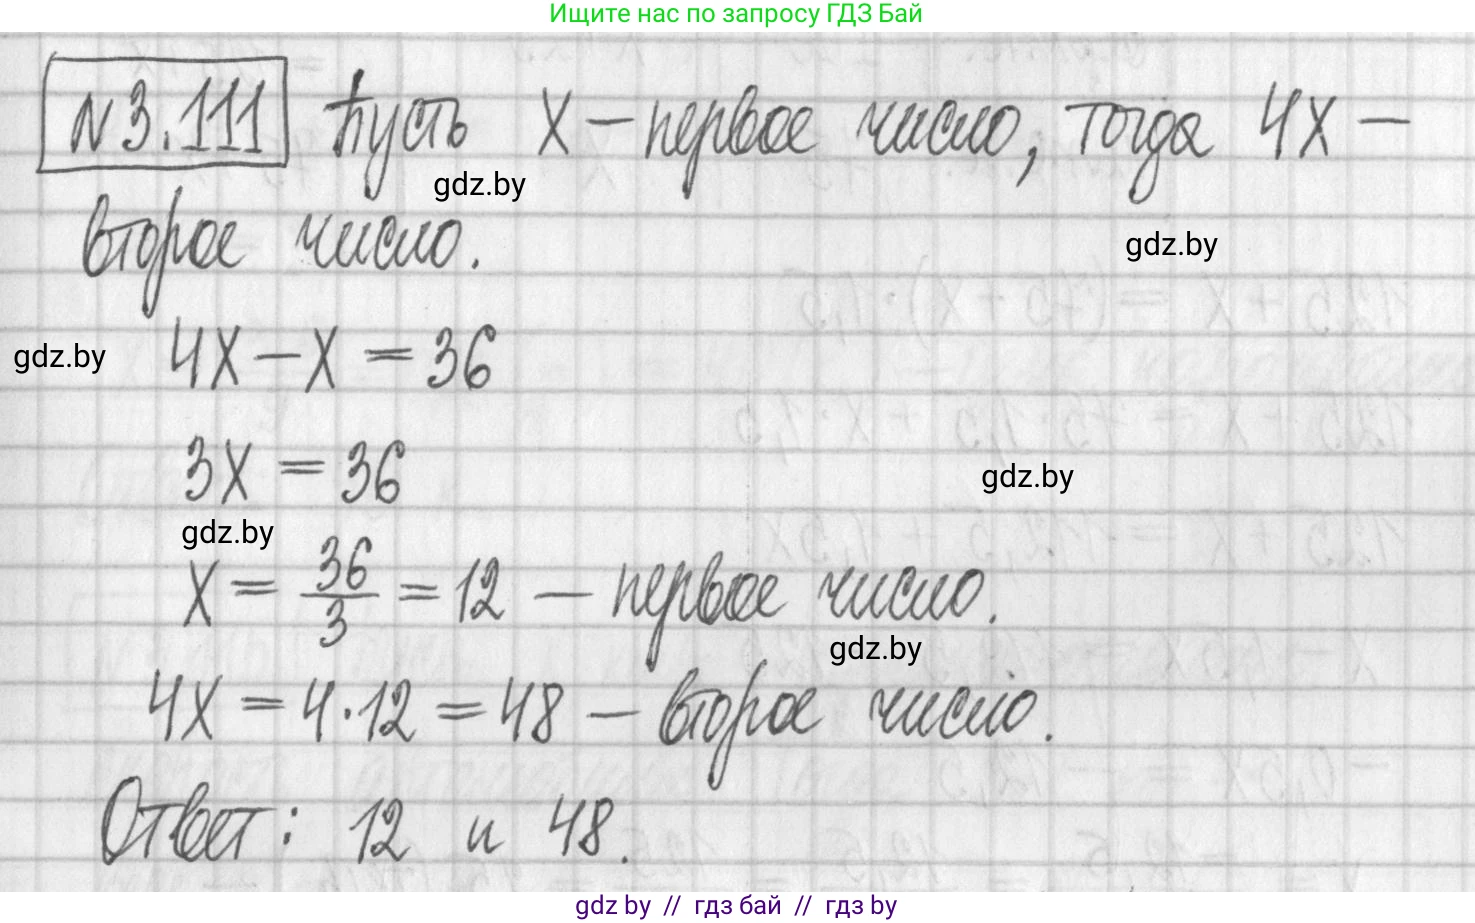 Ищите нас по запросу ГДЗ Бай
№3.111 Пусть x – первое число, тогда 4x –
gdz.by
второе число.
gdz.by
4x – x = 36
gdz.by
3x = 36
gdz.by
gdz.by
x = 36/3 = 12 – первое число.
gdz.by
4x = 4·12 = 48 – второе число.
Ответ: 12 и 48.
gdz by // гдз бай // гдз by